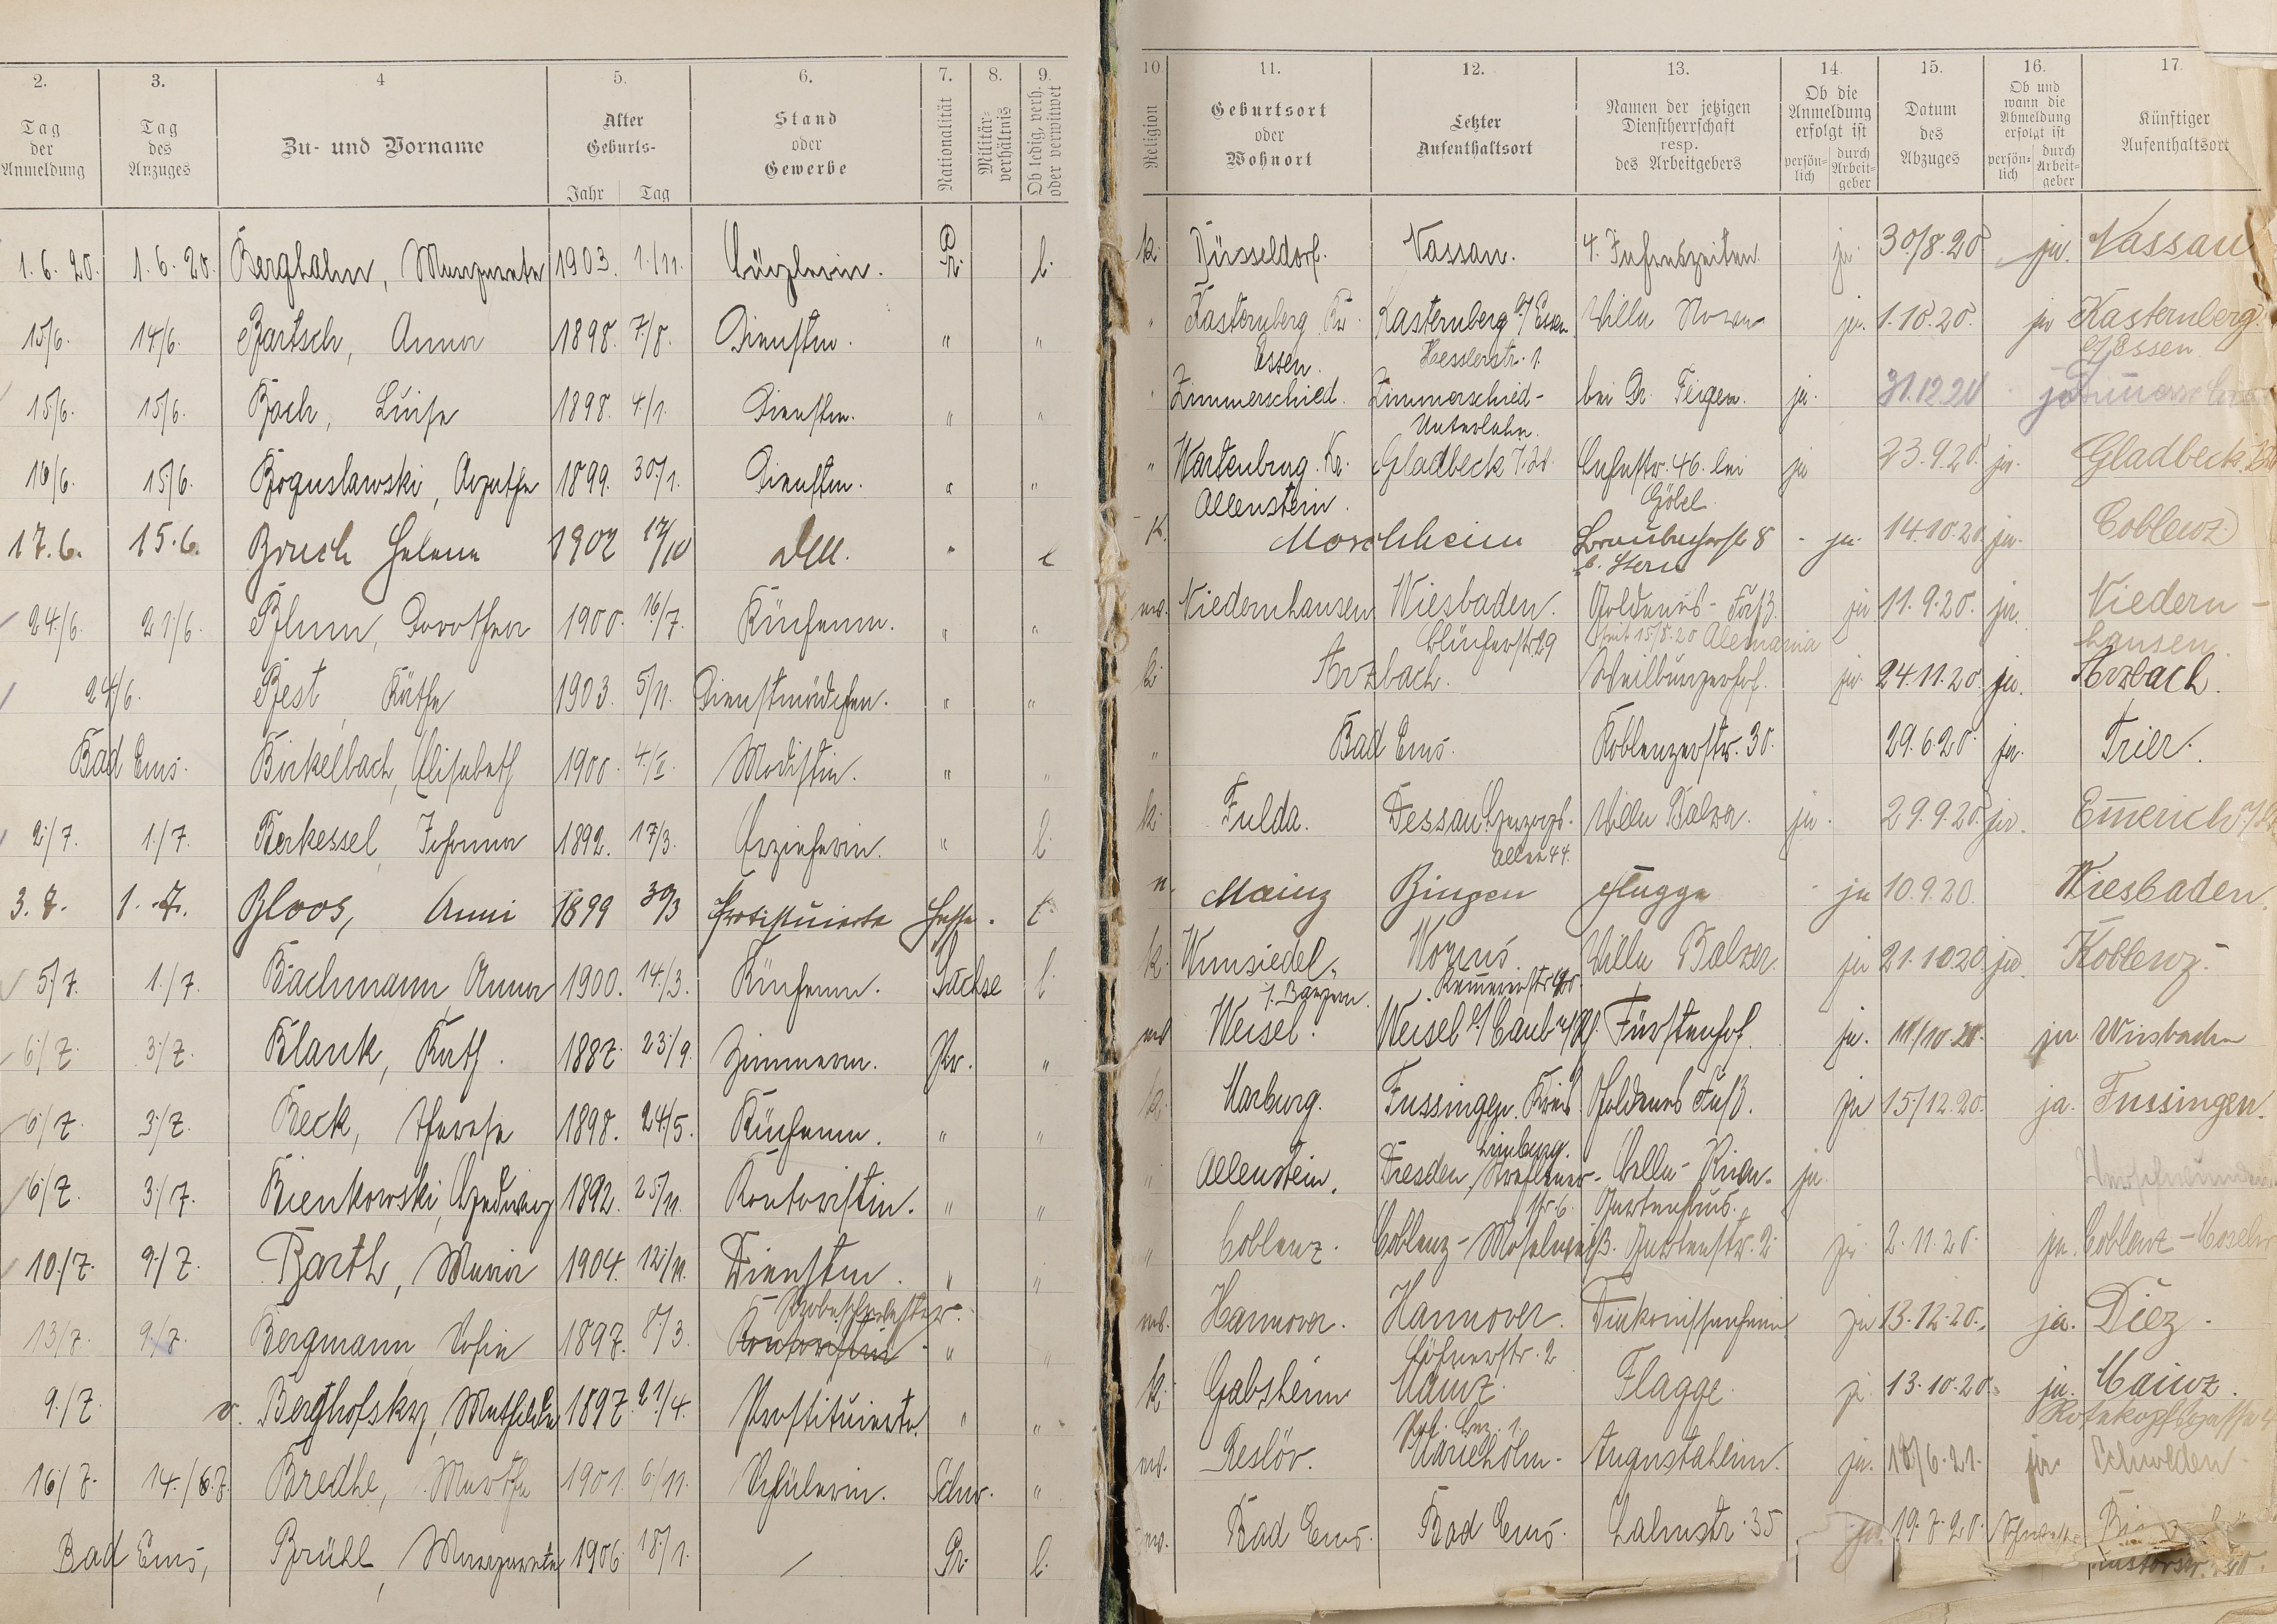 2. 3. 4 5. 6. 7. 8. 9. 10 11. 12. 13. 14. 15. 16. 17.
Tag der Anmeldung
Tag des Anzuges
Zu- und Vorname
Alter Geburts- Jahr Tag
Stand oder Gewerbe
Nationalität
Militär-verhältnis
Ob ledig, verh. oder verwitwet
Religion
Geburtsort oder Wohnort
Letzter Aufenthaltsort
Namen der jetzigen Dienstherrschaft resp. des Arbeitgebers
Ob die Anmeldung erfolgt ist persön-lich durch Arbeit-geber
Datum des Abzuges
Ob und wann die Abmeldung erfolgt ist persön-lich durch Arbeit-geber
Künftiger Aufenthaltsort
1.6.20. 1.6.20. Berghahn, Margarete 1903. 1./11. Pr. l. k. Düsseldorf. Nassau. 4. Jahreszeiten ja 30/8.20 ja. Nassau
15/6. 14/6. Bartsch, Anna 1898. 7/8. Dienstm. " " " Kasternberg Kr. Kasternberg b/Essen. Villa ja. 1.10.20. ja Kasternberg
Essen. Hesslerstr. 1. b/Essen
15/6. 15/6. Bach, Luise 1898. 4/1. Dienstm. " " " Zimmerschied. Zimmerschied- bei Dr. Feigen. ja. 31.12.20 ja
Unterlahn.
16/6. 15/6. Boguslawski, Agathe 1899. 30/1. Dienstm. " " " Wartenburg. Kr. Gladbeck i. W. 46. bei ja 23.9.20. ja. Gladbeck
Allenstein. Göbel.
17.6. 15.6. Bruch Helene 1902 17/10 " l K. Moschheim Braubacherstr 8 - ja. 14.10.20. ja. Coblenz
b. Stern
24/6. 21/6. Blum, Dorothea 1900. 16/7. Küchenm. " " ev. Niedernhausen Wiesbaden. Goldenes-Faß. ja 11.9.20. ja. Niedern-
Blücherstr. 29 seit 15/8.20 Alemania hausen.
24/6. Best, Käthe 1903. 5/11. Dienstmädchen. " " k. Arzbach. Weilburgerhof. ja. 24.11.20. ja. Arzbach.
Bad Ems. Birkelbach, Elisabeth 1900. 4/II. Modistin. " " " Bad Ems. Koblenzerstr. 30. 29.6.20. ja. Trier.
2/7. 1./7. Berkessel, Johanna 1892. 17/3. Erzieherin. " l. k. Fulda. Dessau Villa Balzer. ja. 29.9.20. ja. Emmerich
Allee 44.
3.7. 1.7. Bloos, Anni 1899 30/3 Prostituierte Hesse. l Mainz Bingen Flagge - ja 10.9.20. Wiesbaden.
5/7. 1./7. Bachmann Anna 1900. 14/3. Küchenm. Sachse l. k. Wunsiedel, Worms. Villa Balzer. ja 21.10.20. ja. Koblenz.
i. Bayern.
6/7. 3/7. Blank, Kath. 1887. 23/9. Zimmerm. Pr. " ev. Weisel. Weisel b/Caub a/Rh. Fürstenhof. ja. ja Wiesbaden
6/7. 3/7. Beck, Therese 1898. 24/5. Küchenm. " " k. Marburg. Fussingen. Kreis Goldenes Faß. ja 15/12.20. ja. Fussingen.
Limburg.
6/7. 3/7. Bienkowski, Hedwig 1892. 25/11. Kontoristin. " " " Allenstein. Dresden, Villa ja.
str. 6. Gartenhaus.
10/7. 9/7. Barth, Maria 1904. 12/11. Dienstm. " " " Coblenz. Coblenz-Moselweiß. Gartenstr. 2. ja. 2.11.20. ja. Coblenz-Moselw
Probeschwester.
13/7. 9/7. Bergmann Sofie 1897. 8/3. Kontoristin " " ev. Hannover. Hannover. Diakonissenheim ja 13.12.20. ja. Diez.
9./7. v. Berghofsky, Mathilde 1897. 21/4. Prostituierte. " " k. Gabsheim Mainz. Flagge. ja 13.10.20. ja. Mainz.
16/7. 14./7. Bredhe, Martha 1901. 6/11. Schülerin. Schw. " ev. Reslöv. Marieholm. Augustaheim. ja. 18/6.21. ja. Schweden.
Bad Ems, Brühl, Margarete 1906. 18/1. Pr. l. ev. Bad Ems. Bad Ems. Lahnstr. 35 ja. 19.7.20.